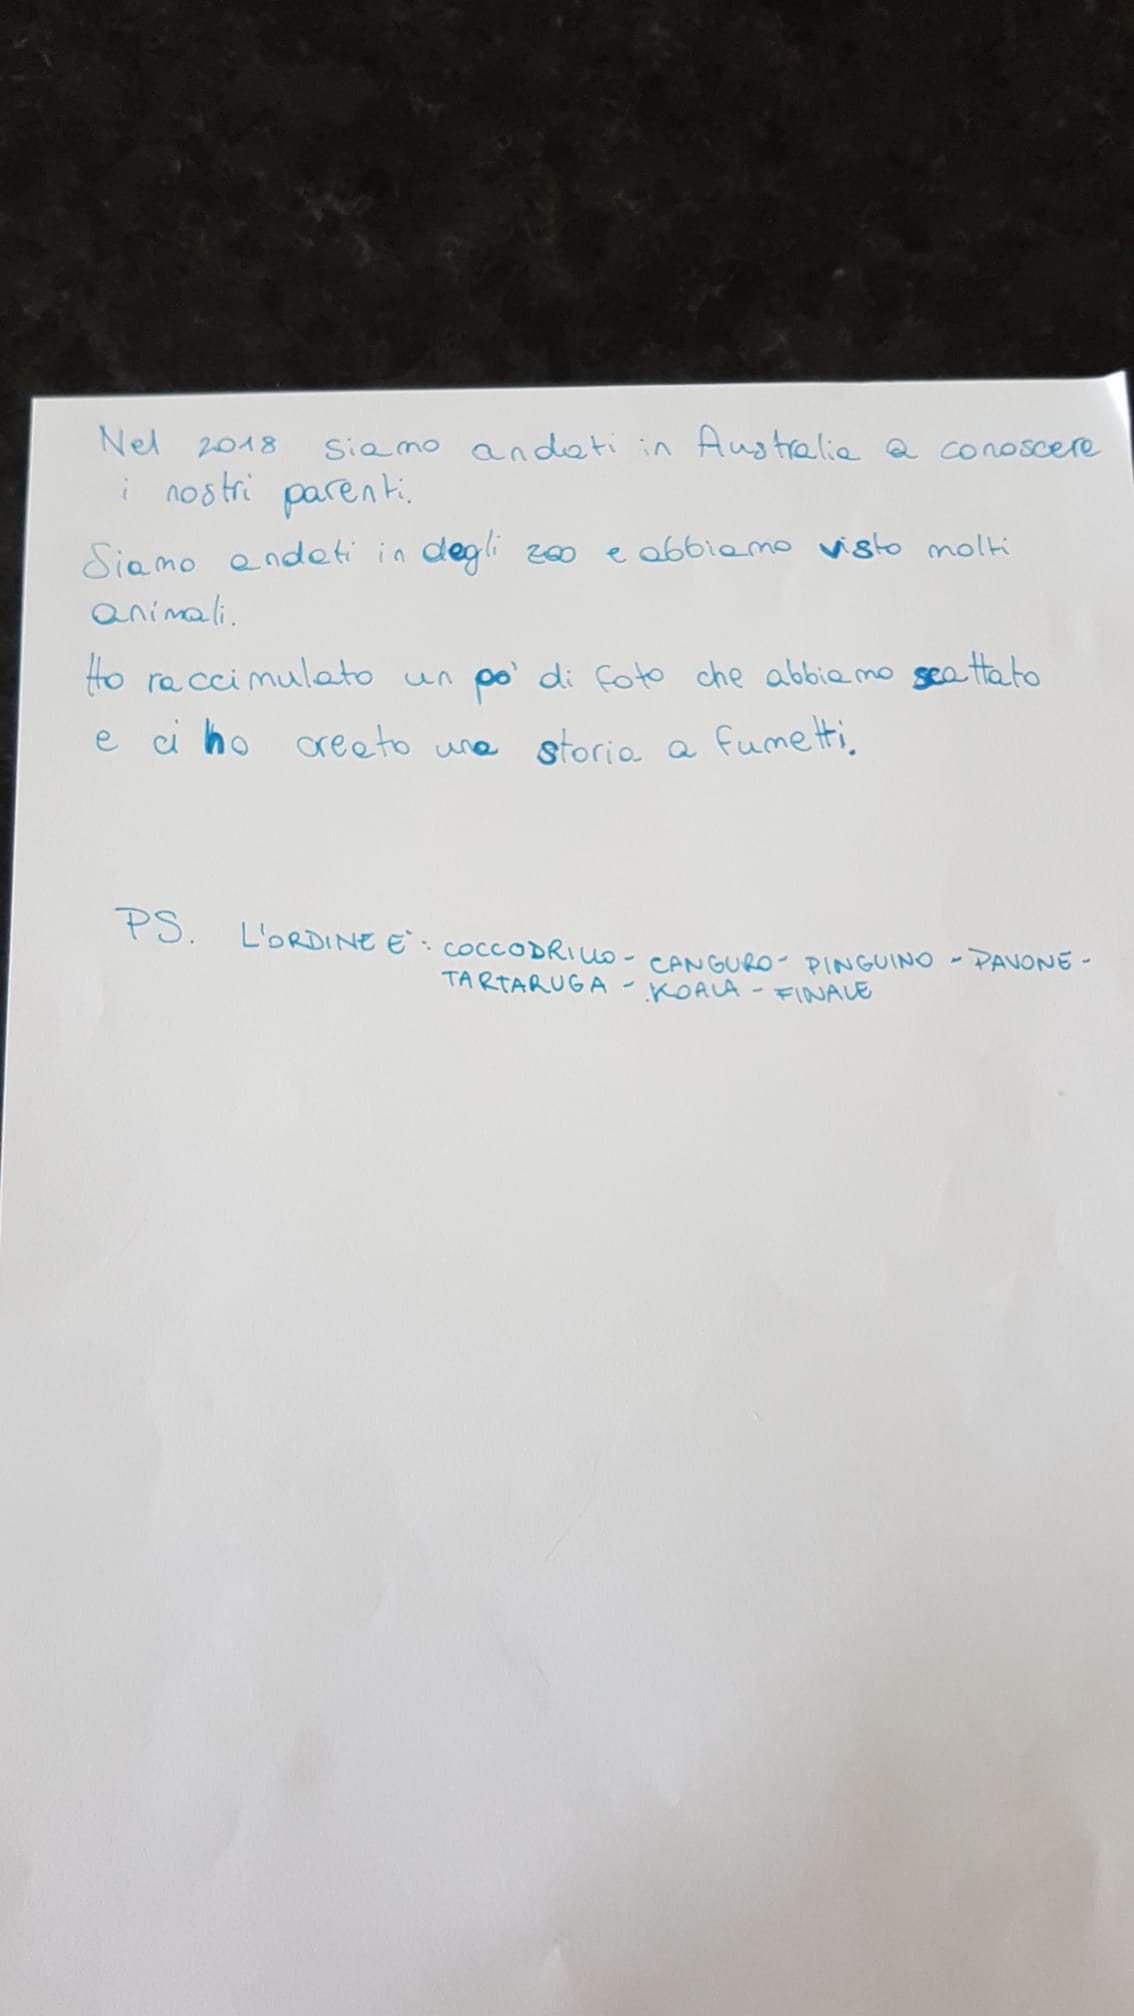 Nel 2018 siamo andati in Australia a conoscere
i nostri parenti.
Siamo andati in degli zoo e abbiamo visto molti
animali.
Ho raccimulato un po' di foto che abbiamo scattato
e ci ho creato una storia a fumetti.
PS. L'ORDINE E': COCCODRILLO - CANGURO - PINGUINO - PAVONE -
TARTARUGA - KOALA - FINALE